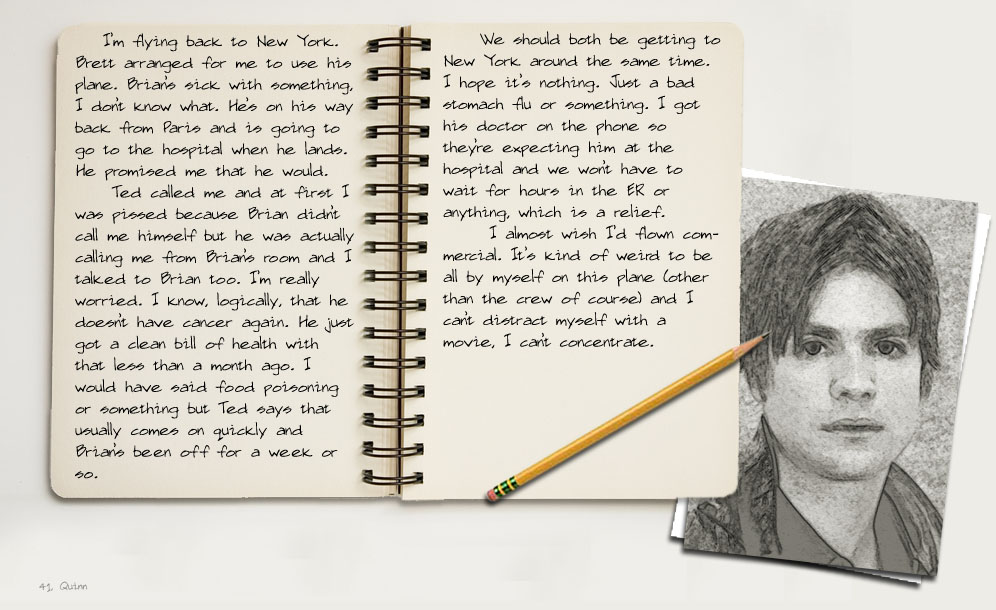 I'm flying back to New York.
Brett arranged for me to use his
plane. Brian's sick with something,
I don't know what. He's on his way
back from Paris and is going to
go to the hospital when he lands.
He promised me that he would.
Ted called me and at first I
was pissed because Brian didn't
call me himself but he was actually
calling me from Brian's room and I
talked to Brian too. I'm really
worried. I know, logically, that he
doesn't have cancer again. He just
got a clean bill of health with
that less than a month ago. I
would have said food poisoning
or something but Ted says that
usually comes on quickly and
Brian's been off for a week or
so.
We should both be getting to
New York around the same time.
I hope it's nothing. Just a bad
stomach flu or something. I got
his doctor on the phone so
they're expecting him at the
hospital and we won't have to
wait for hours in the ER or
anything, which is a relief.
I almost wish I'd flown com-
mercial. It's kind of weird to be
all by myself on this plane (other
than the crew of course) and I
can't distract myself with a
movie, I can't concentrate.
41, Quinn